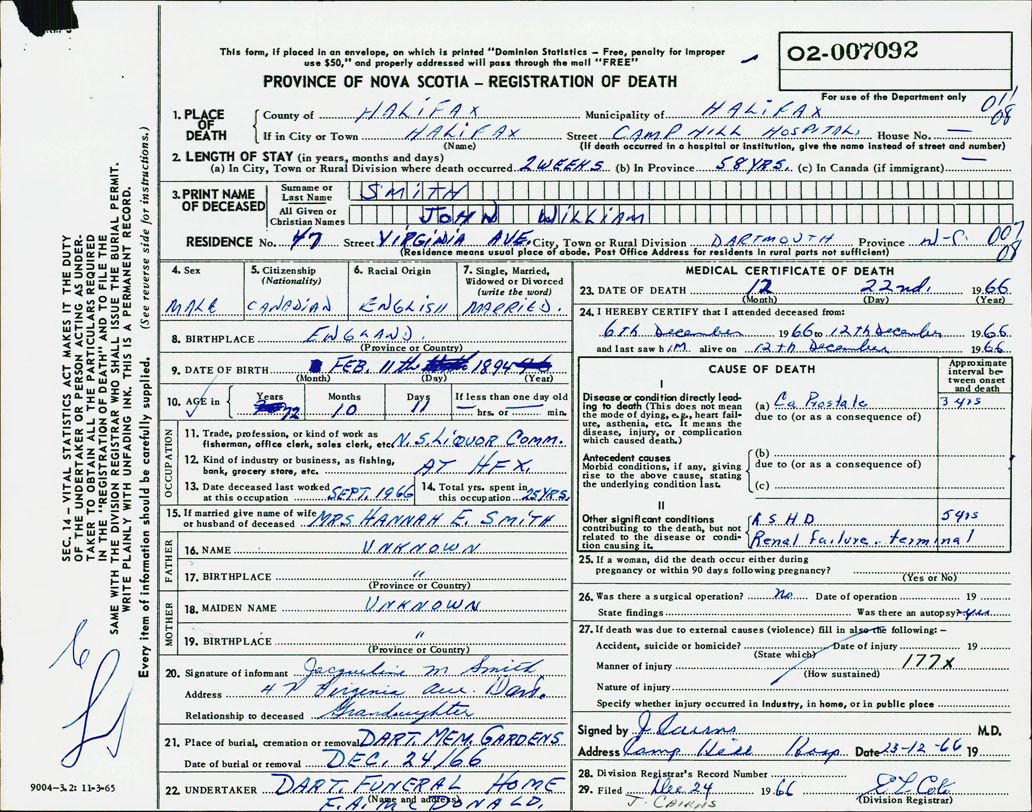 This form, if placed in an envelope, on which is printed "Dominion Statistics – Free, penalty for improper
use $50," and properly addressed will pass through the mail "FREE"
02-007092
PROVINCE OF NOVA SCOTIA – REGISTRATION OF DEATH
For use of the Department only
1. PLACE OF DEATH County of HALIFAX Municipality of HALIFAX 011 08
If in City or Town HALIFAX Street CAMP HILL HOSPITAL, House No. —
(Name) (If death occurred in a hospital or institution, give the name instead of street and number)
2. LENGTH OF STAY (in years, months and days)
(a) In City, Town or Rural Division where death occurred 2 WEEKS (b) In Province 58 YRS. (c) In Canada (if immigrant) —
3. PRINT NAME OF DECEASED Surname or Last Name SMITH
All Given or Christian Names JOHN WILLIAM
RESIDENCE No. 47 Street VIRGINIA AVE. City, Town or Rural Division DARTMOUTH Province N-S 007 08
(Residence means usual place of abode. Post Office Address for residents in rural parts not sufficient)
4. Sex
MALE
5. Citizenship
(Nationality)
CANADIAN
6. Racial Origin
ENGLISH
7. Single, Married,
Widowed or Divorced
(write the word)
MARRIED.
8. BIRTHPLACE ENGLAND.
(Province or Country)
9. DATE OF BIRTH FEB. 11th 1894
(Month) (Day) (Year)
10. AGE in Years 72 Months 10 Days 11 If less than one day old
hrs. or min.
OCCUPATION
11. Trade, profession, or kind of work as
fisherman, office clerk, sales clerk, etc. N.S. LIQUOR COMM.
12. Kind of industry or business, as fishing,
bank, grocery store, etc. AT HFX.
13. Date deceased last worked
at this occupation SEPT. 1966
14. Total yrs. spent in
this occupation 25 YRS.
15. If married give name of wife
or husband of deceased MRS HANNAH E. SMITH
FATHER
16. NAME UNKNOWN
17. BIRTHPLACE "
(Province or Country)
MOTHER
18. MAIDEN NAME UNKNOWN
19. BIRTHPLACE "
(Province or Country)
20. Signature of informant Jacqueline M Smith
Address 47 Virginia Ave. Dart.
Relationship to deceased Grandaughter
21. Place of burial, cremation or removal DART. MEM. GARDENS
Date of burial or removal DEC. 24/66
22. UNDERTAKER DART. FUNERAL HOME
(Name and address)
MEDICAL CERTIFICATE OF DEATH
23. DATE OF DEATH 12 22nd. 1966
(Month) (Day) (Year)
24. I HEREBY CERTIFY that I attended deceased from:
6th December 1966 to 12th December 1966
and last saw hIM alive on 12th December 1966
CAUSE OF DEATH
Approximate
interval be-
tween onset
and death
I
Disease or condition directly lead-
ing to death (This does not mean
the mode of dying, e.g., heart fail-
ure, asthenia, etc. It means the
disease, injury, or complication
which caused death.)
(a) Ca Prostate 3 yrs
due to (or as a consequence of)
Antecedent causes
Morbid conditions, if any, giving
rise to the above cause, stating
the underlying condition last.
(b)
due to (or as a consequence of)
(c)
II
Other significant conditions
contributing to the death, but not
related to the disease or condi-
tion causing it.
A S H D 5 yrs
Renal Failure - terminal
25. If a woman, did the death occur either during
pregnancy or within 90 days following pregnancy?
(Yes or No)
26. Was there a surgical operation? No Date of operation 19
State findings Was there an autopsy? yes
27. If death was due to external causes (violence) fill in also the following:–
Accident, suicide or homicide? Date of injury 19
(State which)
Manner of injury 177x
(How sustained)
Nature of injury
Specify whether injury occurred in industry, in home, or in public place
Signed by J Cairns M.D.
Address Camp Hill Hosp Date 23-12-66 19
28. Division Registrar's Record Number
29. Filed Dec 24 1966
J. CAIRNS (Division Registrar)
SEC. 14 – VITAL STATISTICS ACT MAKES IT THE DUTY
OF THE UNDERTAKER OR PERSON ACTING AS UNDER-
TAKER TO OBTAIN ALL THE PARTICULARS REQUIRED
IN THE "REGISTRATION OF DEATH" AND TO FILE THE
SAME WITH THE DIVISION REGISTRAR WHO SHALL ISSUE THE BURIAL PERMIT.
WRITE PLAINLY WITH UNFADING INK. THIS IS A PERMANENT RECORD.
Every item of information should be carefully supplied. (See reverse side for instructions.)
9004-3.2: 11-3-65